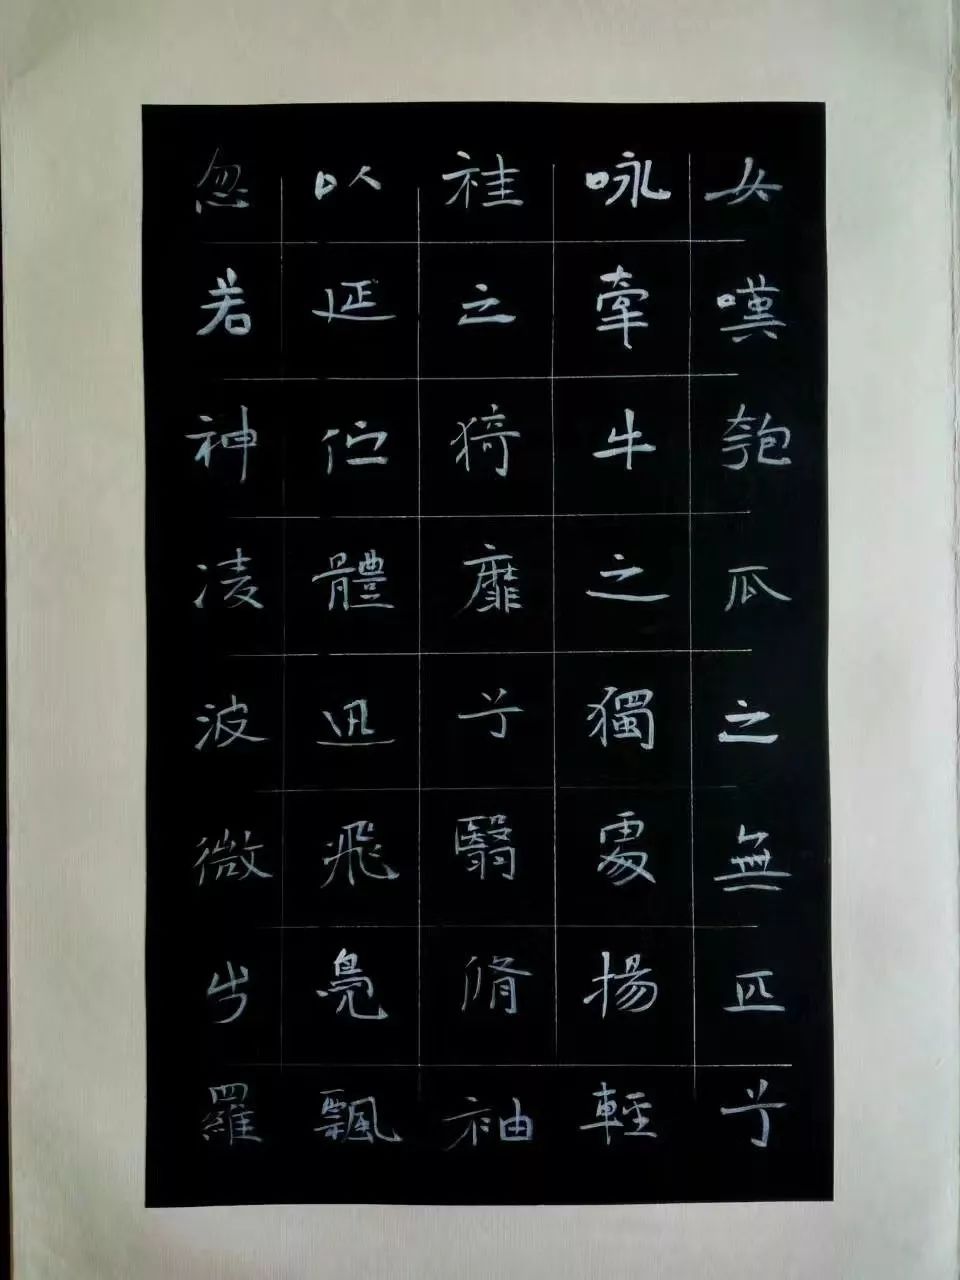 女嘆匏瓜之無匹兮
咏牽牛之獨處揚輕
袿之猗靡兮翳脩袖
以延佇體迅飛鳧飄
忽若神凌波微步羅